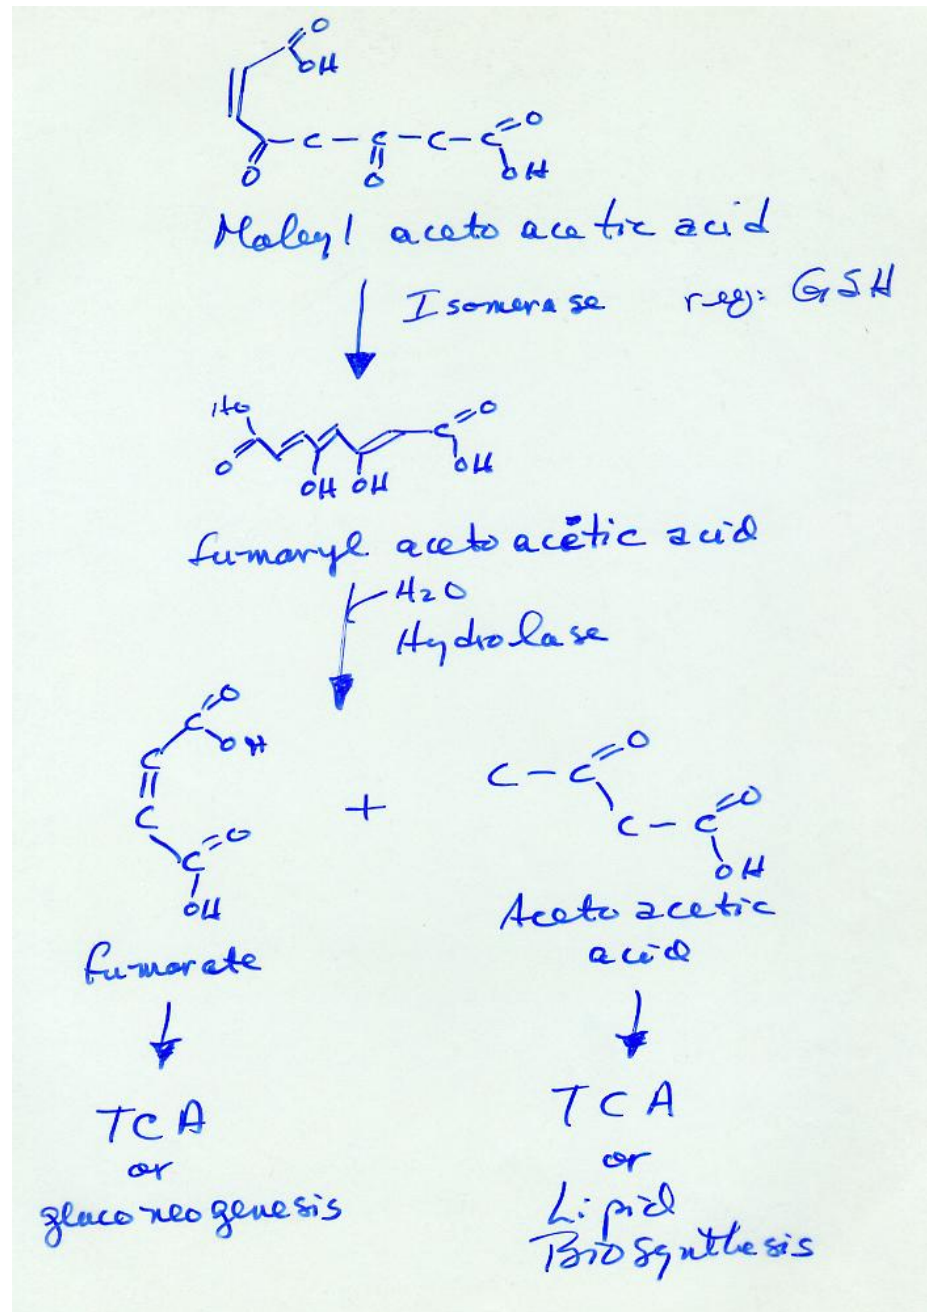 O
OH
C - C - C - C O
O O OH
Maleyl aceto acetic acid
Isomerase req: GSH
HO
C O
O OH
OH OH
fumaryl aceto acetic acid
H2O
Hydrolase
C O
OH
C
C
C O
OH
+
C - C O
C - C O
OH
fumarate
Aceto acetic
acid
TCA
or
gluconeogenesis
TCA
or
Lipid
Biosynthesis